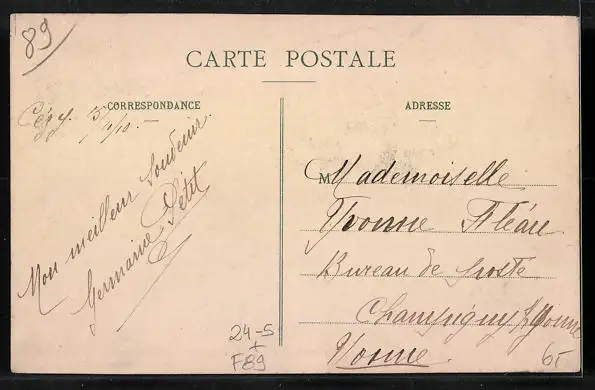 89
CARTE POSTALE
CORRESPONDANCE
ADRESSE
Cézy 3/1/10.
Mon meilleur souvenir.
Germaine Petit
Mademoiselle
Yvonne Fléau
Bureau de poste
Champigny s/Yonne
Yonne.
24-5
+
F89
65